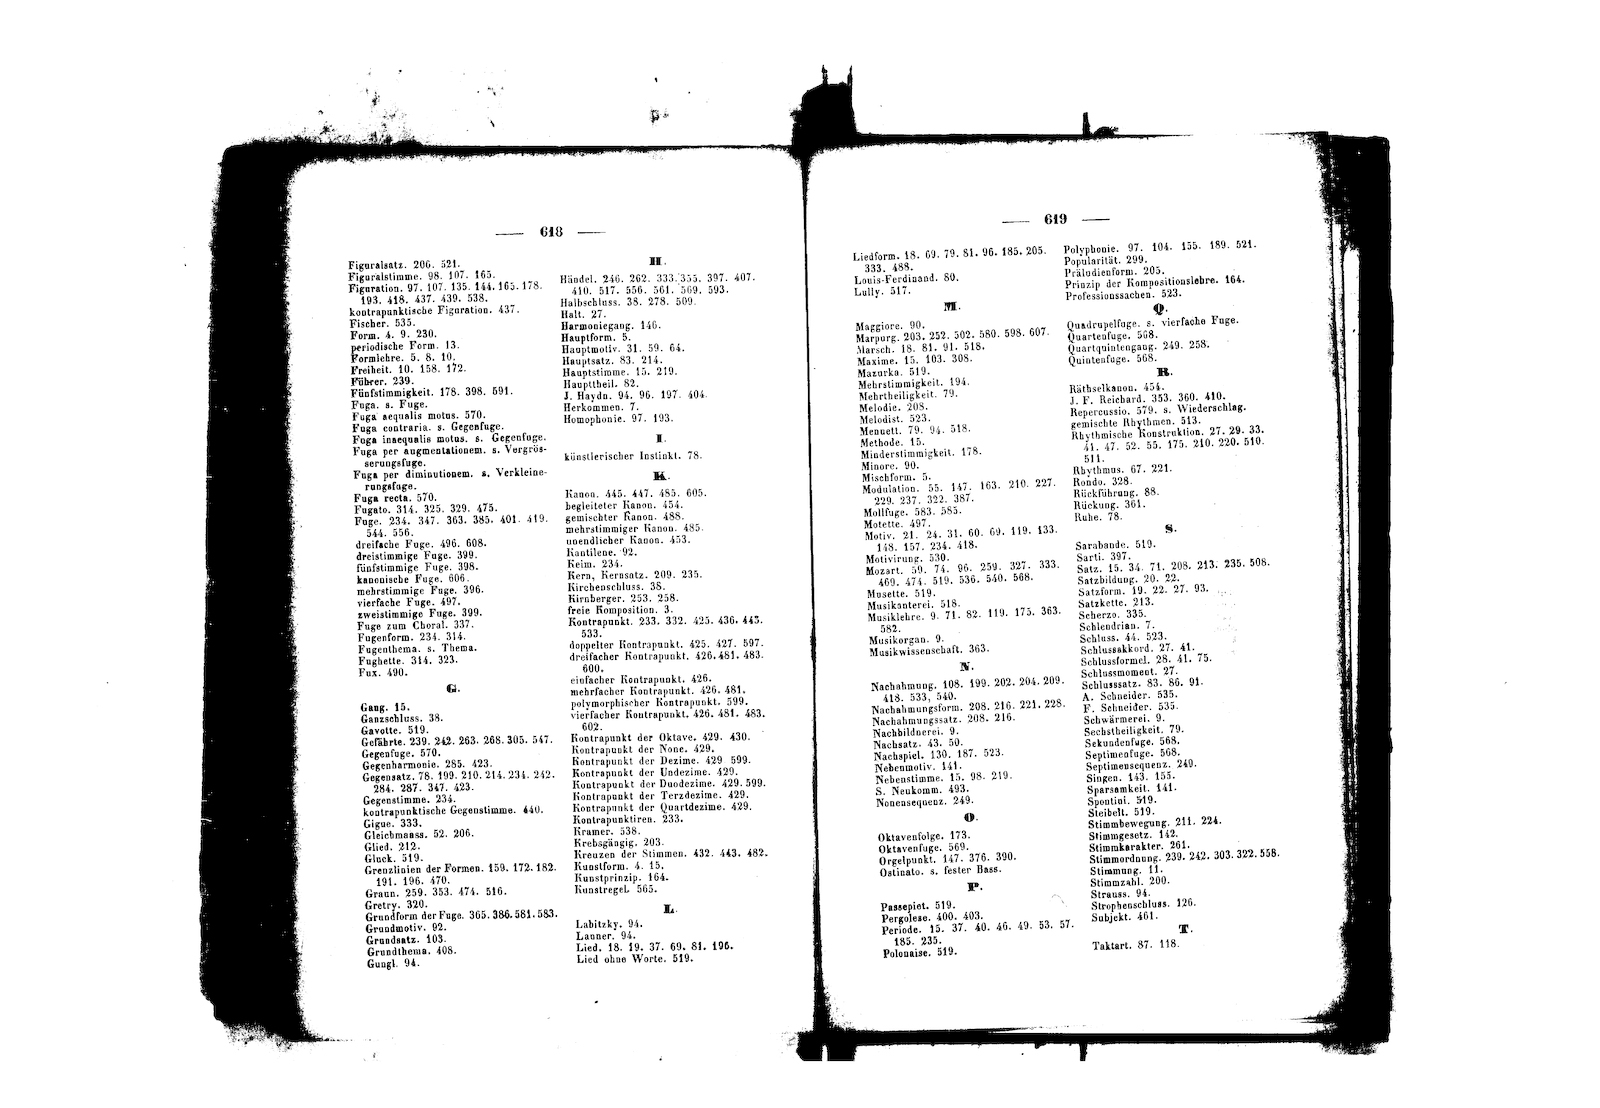 — 618 —
Figuralsatz. 206. 521.
Figuralstimme. 98. 107. 165.
Figuration. 97. 107. 135. 144. 165. 178.
193. 418. 437. 439. 538.
kontrapunktische Figuration. 437.
Fischer. 535.
Form. 4. 9. 230.
periodische Form. 13.
Formlehre. 5. 8. 10.
Freiheit. 10. 158. 172.
Führer. 239.
Fünfstimmigkeit. 178. 398. 591.
Fuga. s. Fuge.
Fuga aequalis motus. 570.
Fuga contraria. s. Gegenfuge.
Fuga inaequalis motus. s. Gegenfuge.
Fuga per augmentationem. s. Vergrös-
serungsfuge.
Fuga per diminutionem. s. Verkleine-
rungsfuge.
Fuga recta. 570.
Fugato. 314. 325. 329. 475.
Fuge. 234. 347. 363. 385. 401. 419.
544. 556.
dreifache Fuge. 496. 608.
dreistimmige Fuge. 399.
fünfstimmige Fuge. 398.
kanonische Fuge. 606.
mehrstimmige Fuge. 396.
vierfache Fuge. 497.
zweistimmige Fuge. 399.
Fuge zum Choral. 337.
Fugenform. 234. 314.
Fugenthema. s. Thema.
Fughette. 314. 323.
Fux. 490.
G.
Gang. 15.
Ganzschluss. 38.
Gavotte. 519.
Gefährte. 239. 242. 263. 268. 305. 547.
Gegenfuge. 570.
Gegenharmonie. 285. 423.
Gegensatz. 78. 199. 210. 214. 234. 242.
284. 287. 347. 423.
Gegenstimme. 234.
kontrapunktische Gegenstimme. 440.
Gigue. 333.
Gleichmaass. 52. 206.
Glied. 212.
Gluck. 519.
Grenzlinien der Formen. 159. 172. 182.
191. 196. 470.
Graun. 259. 353. 474. 516.
Gretry. 320.
Grundform der Fuge. 365. 386. 581. 583.
Grundmotiv. 92.
Grundsatz. 103.
Grundthema. 408.
Gungl. 94.
H.
Händel. 246. 262. 333. 355. 397. 407.
410. 517. 556. 561. 569. 593.
Halbschluss. 38. 278. 509.
Halt. 27.
Harmoniegang. 146.
Hauptform. 5.
Hauptmotiv. 31. 59. 64.
Hauptsatz. 83. 214.
Hauptstimme. 15. 219.
Haupttheil. 82.
J. Haydn. 94. 96. 197. 404.
Herkommen. 7.
Homophonie. 97. 193.
I.
künstlerischer Instinkt. 78.
K.
Kanon. 445. 447. 485. 605.
begleiteter Kanon. 454.
gemischter Kanon. 488.
mehrstimmiger Kanon. 485.
unendlicher Kanon. 453.
Kantilene. 92.
Keim. 234.
Kern, Kernsatz. 209. 235.
Kirchenschluss. 38.
Kirnberger. 253. 258.
freie Komposition. 3.
Kontrapunkt. 233. 332. 425. 436. 445.
533.
doppelter Kontrapunkt. 425. 427. 597.
dreifacher Kontrapunkt. 426. 481. 483.
600.
einfacher Kontrapunkt. 426.
mehrfacher Kontrapunkt. 426. 481.
polymorphischer Kontrapunkt. 599.
vierfacher Kontrapunkt. 426. 481. 483.
602.
Kontrapunkt der Oktave. 429. 430.
Kontrapunkt der None. 429.
Kontrapunkt der Dezime. 429 599.
Kontrapunkt der Undezime. 429.
Kontrapunkt der Duodezime. 429. 599.
Kontrapunkt der Terzdezime. 429.
Kontrapunkt der Quartdezime. 429.
Kontrapunktiren. 233.
Kramer. 538.
Krebsgängig. 203.
Kreuzen der Stimmen. 432. 443. 482.
Kunstform. 4. 15.
Kunstprinzip. 164.
Kunstregel. 565.
L.
Labitzky. 94.
Lanner. 94.
Lied. 18. 19. 37. 69. 81. 196.
Lied ohne Worte. 519.
— 619 —
Liedform. 18. 69. 79. 81. 96. 185. 205.
333. 488.
Louis-Ferdinand. 80.
Lully. 517.
M.
Maggiore. 90.
Marpurg. 203. 252. 502. 580. 598. 607.
Marsch. 18. 81. 91. 518.
Maxime. 15. 103. 308.
Mazurka. 519.
Mehrstimmigkeit. 194.
Mehrtheiligkeit. 79.
Melodie. 208.
Melodist. 523.
Menuett. 79. 94. 518.
Methode. 15.
Minderstimmigkeit. 178.
Minore. 90.
Mischform. 5.
Modulation. 55. 147. 163. 210. 227.
229. 237. 322. 387.
Mollfuge. 583. 585.
Motette. 497.
Motiv. 21. 24. 31. 60. 69. 119. 133.
148. 157. 234. 418.
Motivirung. 530.
Mozart. 59. 74. 96. 259. 327. 333.
469. 474. 519. 536. 540. 568.
Musette. 519.
Musikanterei. 518.
Musiklehre. 9. 71. 82. 119. 175. 363.
582.
Musikorgan. 9.
Musikwissenschaft. 363.
N.
Nachahmung. 108. 199. 202. 204. 209.
418. 533, 540.
Nachahmungsform. 208. 216. 221. 228.
Nachahmungssatz. 208. 216.
Nachbildnerei. 9.
Nachsatz. 43. 50.
Nachspiel. 130. 187. 523.
Nebenmotiv. 141.
Nebenstimme. 15. 98. 219.
S. Neukomm. 493.
Nonensequenz. 249.
O.
Oktavenfolge. 173.
Oktavenfuge. 569.
Orgelpunkt. 147. 376. 390.
Ostinato. s. fester Bass.
P.
Passepiet. 519.
Pergolese. 400. 403.
Periode. 15. 37. 40. 46. 49. 53. 57.
185. 235.
Polonaise. 519.
Polyphonie. 97. 104. 155. 189. 521.
Popularität. 299.
Präludienform. 205.
Prinzip der Kompositionslehre. 164.
Professionssachen. 523.
Q.
Quadrupelfuge. s. vierfache Fuge.
Quartenfuge. 568.
Quartquintengang. 249. 258.
Quintenfuge. 568.
R.
Räthselkanon. 454.
J. F. Reichard. 353. 360. 410.
Repercussio. 579. s. Wiederschlag.
gemischte Rhythmen. 513.
Rhythmische Konstruktion. 27. 29. 33.
41. 47. 52. 55. 175. 210. 220. 510.
511.
Rhythmus. 67. 221.
Rondo. 328.
Rückführung. 88.
Rückung. 361.
Ruhe. 78.
S.
Sarabande. 519.
Sarti. 397.
Satz. 15. 34. 71. 208. 213. 235. 508.
Satzbildung. 20. 22.
Satzform. 19. 22. 27. 93.
Satzkette. 213.
Scherzo. 335.
Schlendrian. 7.
Schluss. 44. 523.
Schlussakkord. 27. 41.
Schlussformel. 28. 41. 75.
Schlussmoment. 27.
Schlusssatz. 83. 86. 91.
A. Schneider. 535.
F. Schneider. 535.
Schwärmerei. 9.
Sechstheiligkeit. 79.
Sekundenfuge. 568.
Septimenfuge. 568.
Septimensequenz. 249.
Singen. 143. 155.
Sparsamkeit. 141.
Spontini. 519.
Steibelt. 519.
Stimmbewegung. 211. 224.
Stimmgesetz. 142.
Stimmkarakter. 261.
Stimmordnung. 239. 242. 303. 322. 558.
Stimmung. 11.
Stimmzahl. 200.
Strauss. 94.
Strophenschluss. 126.
Subjekt. 461.
T.
Taktart. 87. 118.